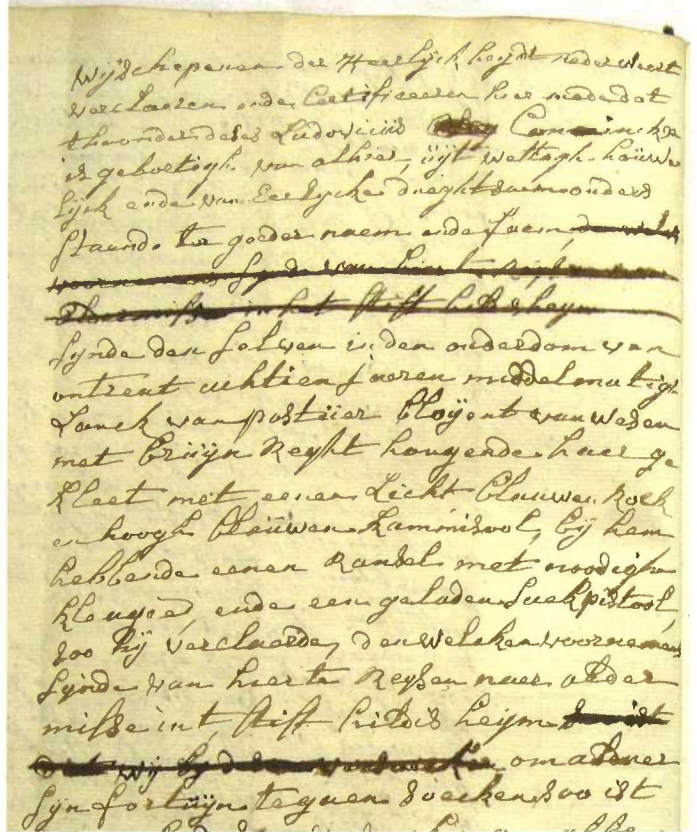 Wij Schepenen der Heerlijckheydt Nederweert
verclaeren ende Certificeeren hier mede dat
thoonder deses Ludovicus Conninckx
is geboortigh van alhier, uijt wettigh houwe
lijck ende van Eerlycke
staende ter goeder naem ende faem, de welck
voornemens synde van hier te
in het stift hildesheym
synde den selven in den ouderdom van
ontrent achtien jaeren middelmatigh
Lanck van postuer bloijent van Wesen
met bruijn Reght hangende haer ge
kleet met eenen Licht blauwen Rock
en hoogh blauwen kammisool, bij hem
hebbende eenen Ransel met noodighe
kleugie, ende een geladen sackpistool,
soo hij verclaerde, den welcken voornemens
synde van hier te Reysen naer alder
misse int stift hildisheym soo ist
dat wij om aldaer
syn fortuijn te gaen soecken soo ist